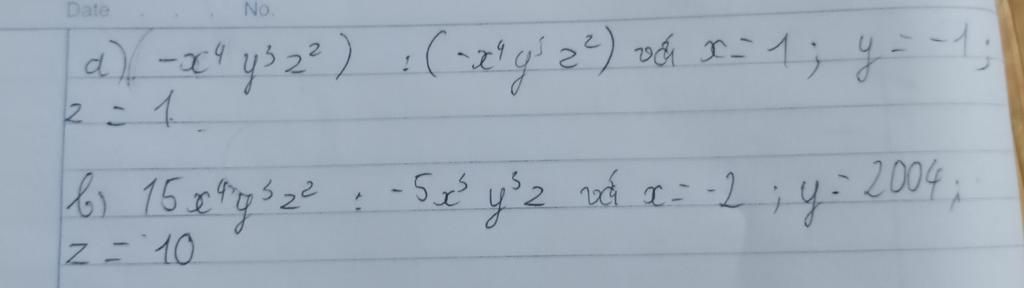 Date No.
a) (-x⁴ y³ z²) : (-x⁴ y³ z²) với x = 1 ; y = -1 ;
z = 1
b) 15x⁴y³z² : -5x³ y³z với x = -2 ; y = 2004 ;
z = 10